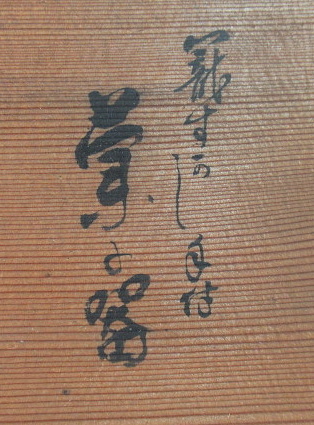 籠すかし手付
菓子器